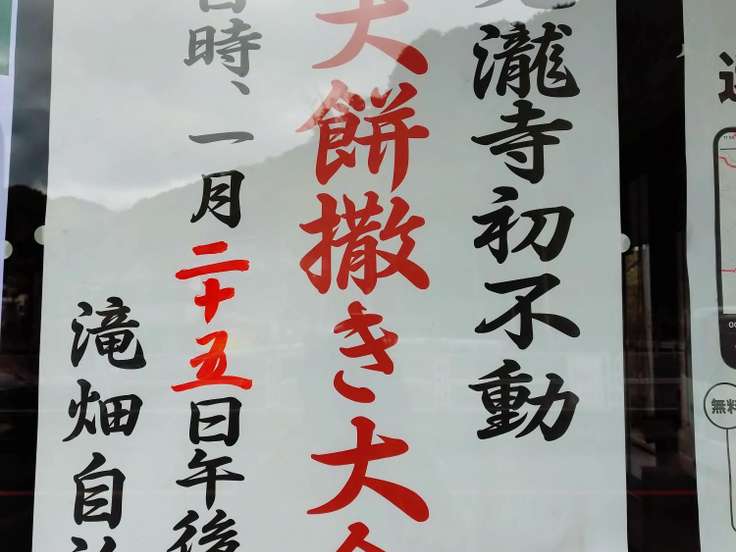 瀧寺初不動
大餅撒き大会
日時、一月二十五日午後
滝畑自治
無料